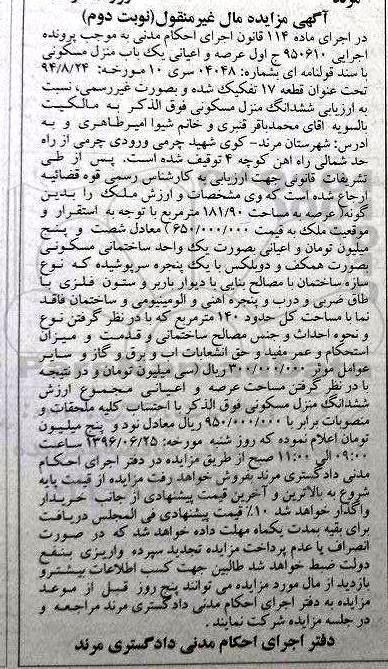 آگهی مزایده مال غیرمنقول(نوبت دوم)
در اجرای ماده ۱۱۴ قانون اجرای احکام مدنی به موجب پرونده
اجرایی ۹۵۰۶۱۰ ج اول عرصه و اعیانی یک باب منزل مسکونی
با سند قولنامه ای بشماره: ۰۴۰۴۸ سری ۱۰ مورخه: ۹۴/۸/۲۴
تحت عنوان قطعه ۱۷ تفکیک شده و بصورت غیررسمی، نسبت
به ارزیابی ششدانگ منزل مسکونی فوق الذکر به مالکیت
بالسویه اقای محمدباقر قنبری و خانم شیوا امیرطاهری و به
ادرس: شهرستان مرند- کوی شهید چرمی ورودی چرمی از راه
حد شمالی راه اهن کوچه ۴ توقیف شده است. پس از طی
تشریفات قانونی جهت ارزیابی به کارشناس رسمی قوه قضائیه
ارجاع شده است که وی مشخصات و ارزش ملک را بدین
گونه( عرصه به مساحت ۱۸۱/۹۰ مترمربع با توجه به استقرار و
موقعیت ملک به قیمت ۶۵۰/۰۰۰/۰۰۰) معادل شصت و پنج
میلیون تومان و اعیانی بصورت یک واحد ساختمانی مسکونی
بصورت همکف و دوبلکس با یک پنجره سرپوشیده که نوع
سازه ساختمان با مصالح بنایی با دیوار باربر و ستون فلزی با
طاق ضربی و درب و پنجره اهنی و الومینیومی و ساختمان فاقد
نما با مساحت کل حدود ۱۴۰ مترمربع که با در نظر گرفتن نوع
و نحوه احداث و جنس مصالح ساختمانی و قدمت و میزان
استحکام و عمر مفید و حق انشعابات اب و برق و گاز و سایر
عوامل موثر ۳۰۰/۰۰۰/۰۰۰ ریال (سی میلیون تومان و در نتیجه
با در نظر گرفتن مساحت عرصه و اعیانی مجموع ارزش
ششدانگ منزل مسکونی فوق الذکر با احتساب کلیه ملحقات و
منصوبات برابر با ۹۵۰/۰۰۰/۰۰۰ ریال معادل نود و پنج میلیون
تومان اعلام نموده که روز شنبه مورخه: ۱۳۹۶/۰۶/۲۵ ساعت
۰۹:۰۰ الی ۱۱:۰۰ صبح از طریق مزایده در دفتر اجرای احکام
مدنی دادگستری مرند بفروش خواهد رفت مزایده از قیمت پایه
شروع به بالاترین و آخرین قیمت پیشنهادی از جانب خریدار
واگذار خواهد شد ۱۰٪ قیمت پیشنهادی فی المجلس دریافت
برای بقیه بمدت یکماه مهلت داده خواهد شد که در صورت
انصراف یا عدم پرداخت مزایده تجدید سپرده واریزی بنفع
دولت ضبط خواهد شد طالبین جهت کسب اطلاعات بیشترو
بازدید از مال مورد مزایده می توانند پنج روز قبل از موعد
مزایده به دفتر اجرای احکام مدنی دادگستری مرند مراجعه و
در جلسه مزایده شرکت نمایند.
دفتر اجرای احکام مدنی دادگستری مرند